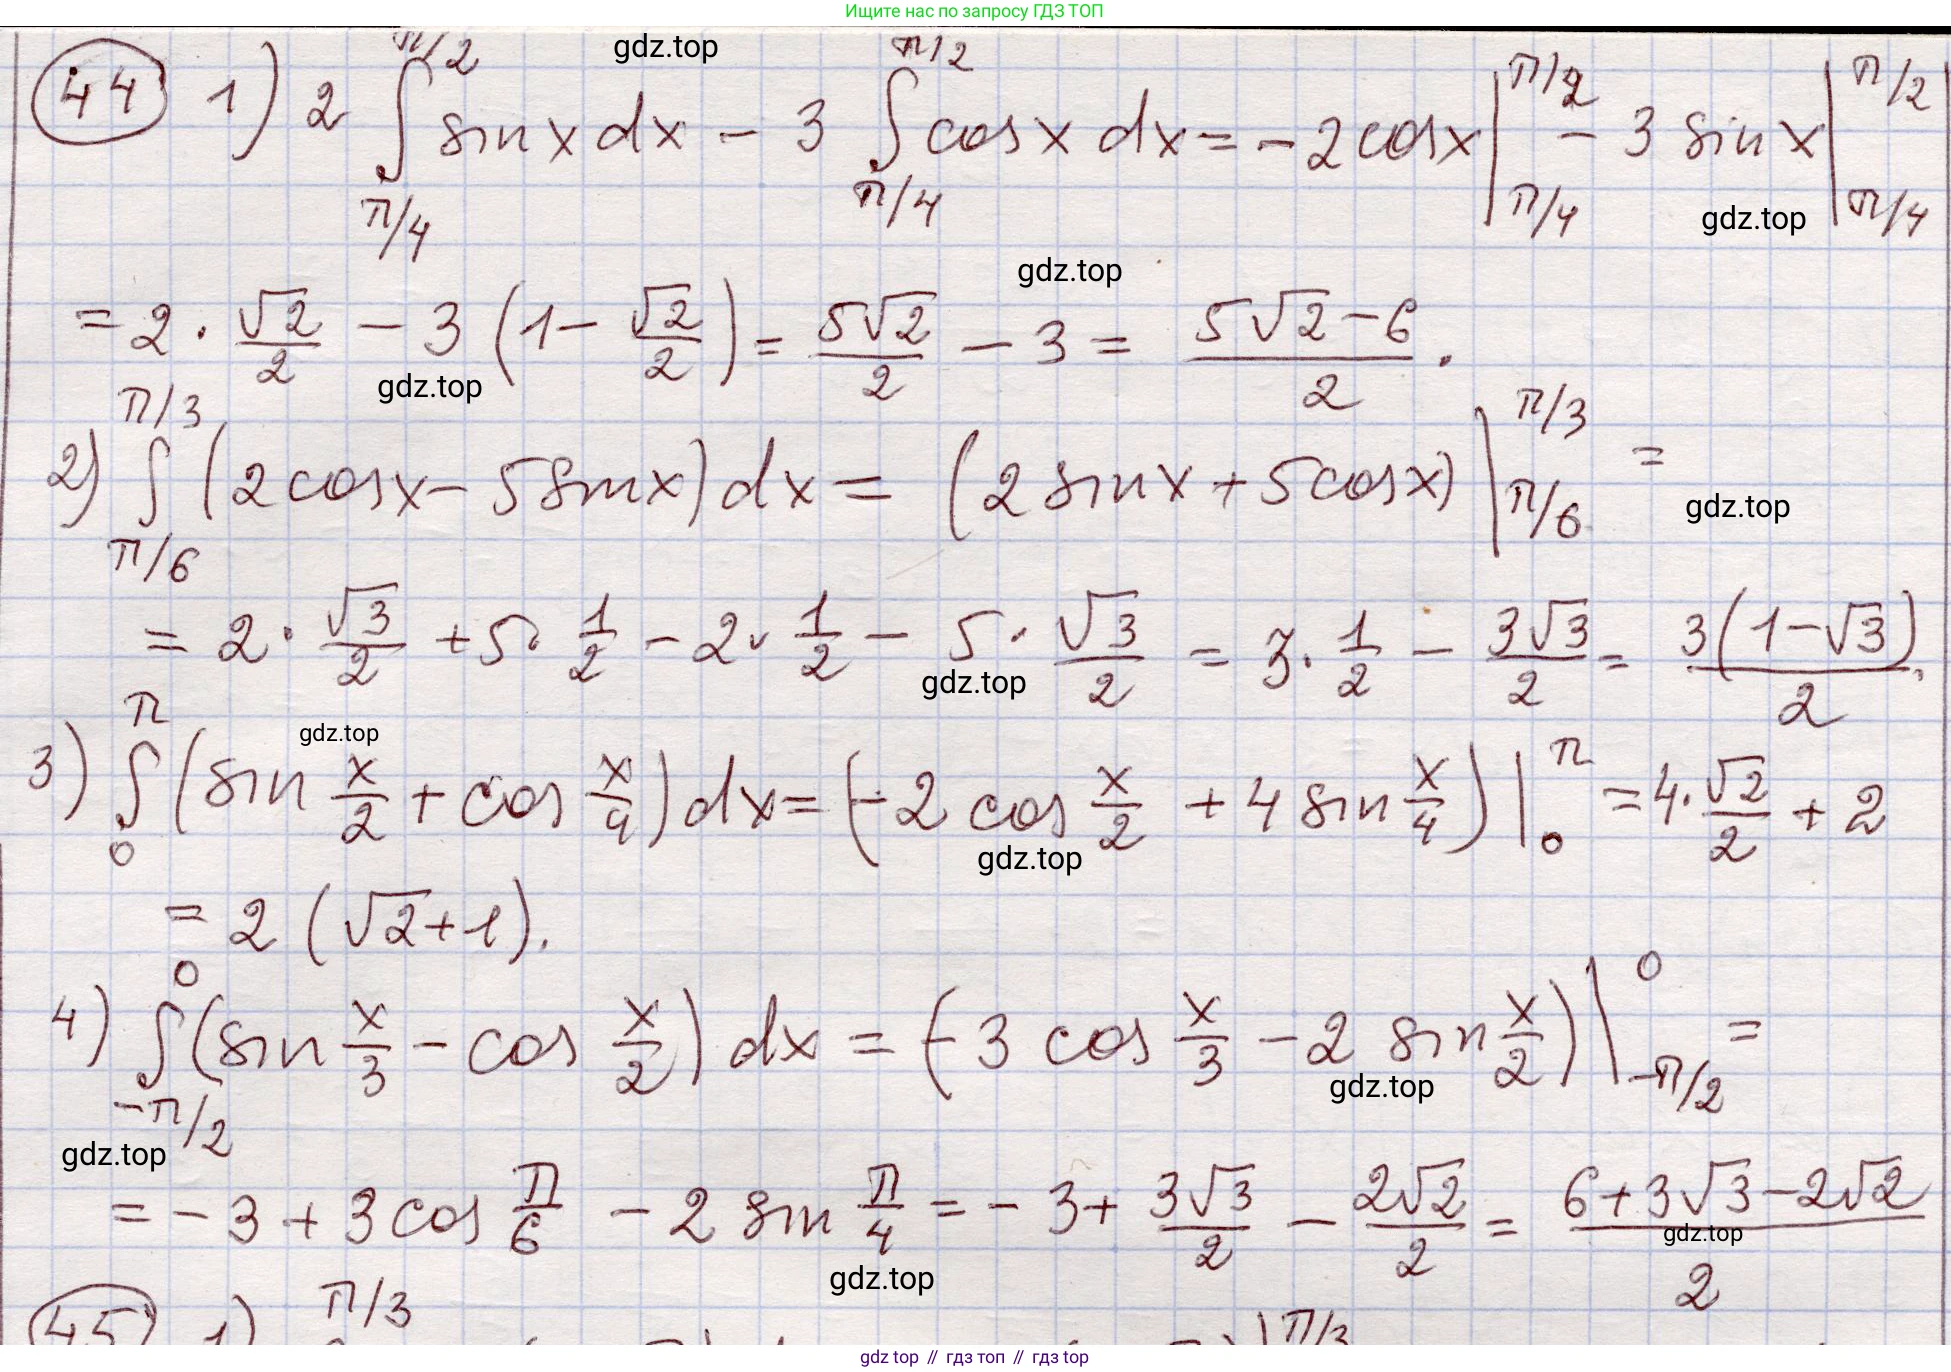 Ищите нас по запросу ГДЗ ТОП
44 1) 2 ∫_{π/4}^{π/2} sin x dx − 3 ∫_{π/4}^{π/2} cos x dx = −2 cos x |_{π/4}^{π/2} − 3 sin x |_{π/4}^{π/2}
gdz.top
gdz.top
gdz.top
= 2 · √2/2 − 3 (1 − √2/2) = 5√2/2 − 3 = (5√2 − 6)/2 .
gdz.top
2) ∫_{π/6}^{π/3} (2 cos x − 5 sin x) dx = (2 sin x + 5 cos x) |_{π/6}^{π/3} =
gdz.top
= 2 · √3/2 + 5 · 1/2 − 2 · 1/2 − 5 · √3/2 = 3 · 1/2 − 3√3/2 = 3(1 − √3)/2 .
gdz.top
gdz.top
3) ∫_{0}^{π} (sin x/2 + cos x/4) dx = (−2 cos x/2 + 4 sin x/4) |_{0}^{π} = 4 · √2/2 + 2
gdz.top
= 2 (√2 + 1).
4) ∫_{−π/2}^{0} (sin x/3 − cos x/2) dx = (−3 cos x/3 − 2 sin x/2) |_{−π/2}^{0} =
gdz.top
gdz.top
= −3 + 3 cos π/6 − 2 sin π/4 = −3 + 3√3/2 − 2√2/2 = (6 + 3√3 − 2√2)/2
gdz.top
gdz.top
45 1) π/3 π/3
gdz top // гдз топ // гдз top